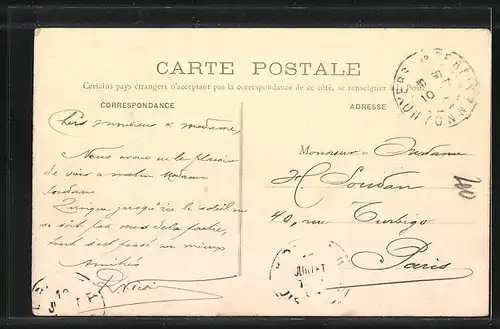 CARTE POSTALE
Certains pays étrangers n'acceptant pas la correspondance de ce côté, se renseigner à la Poste
CORRESPONDANCE
ADRESSE
Chers monsieur & madame,
Nous avons eu le plaisir
de voir ce matin Madame
Soudan
Quoique jusqu'ici le soleil ne
se soit pas mis de la partie,
tout s'est passé au mieux
Amitiés
Monsieur & Madame
H. Soudan
40, rue Turbigo
Paris
200
JUILLET